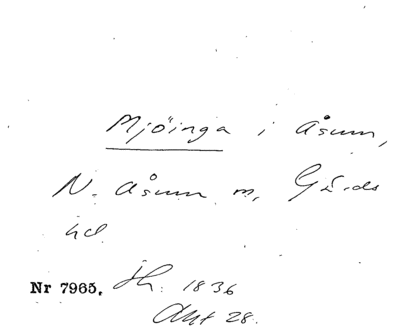 Mjöinga i Åsum,
N. Åsum sn, Gärds
hd
Nr 7965. Sk. 1836
Akt 28.